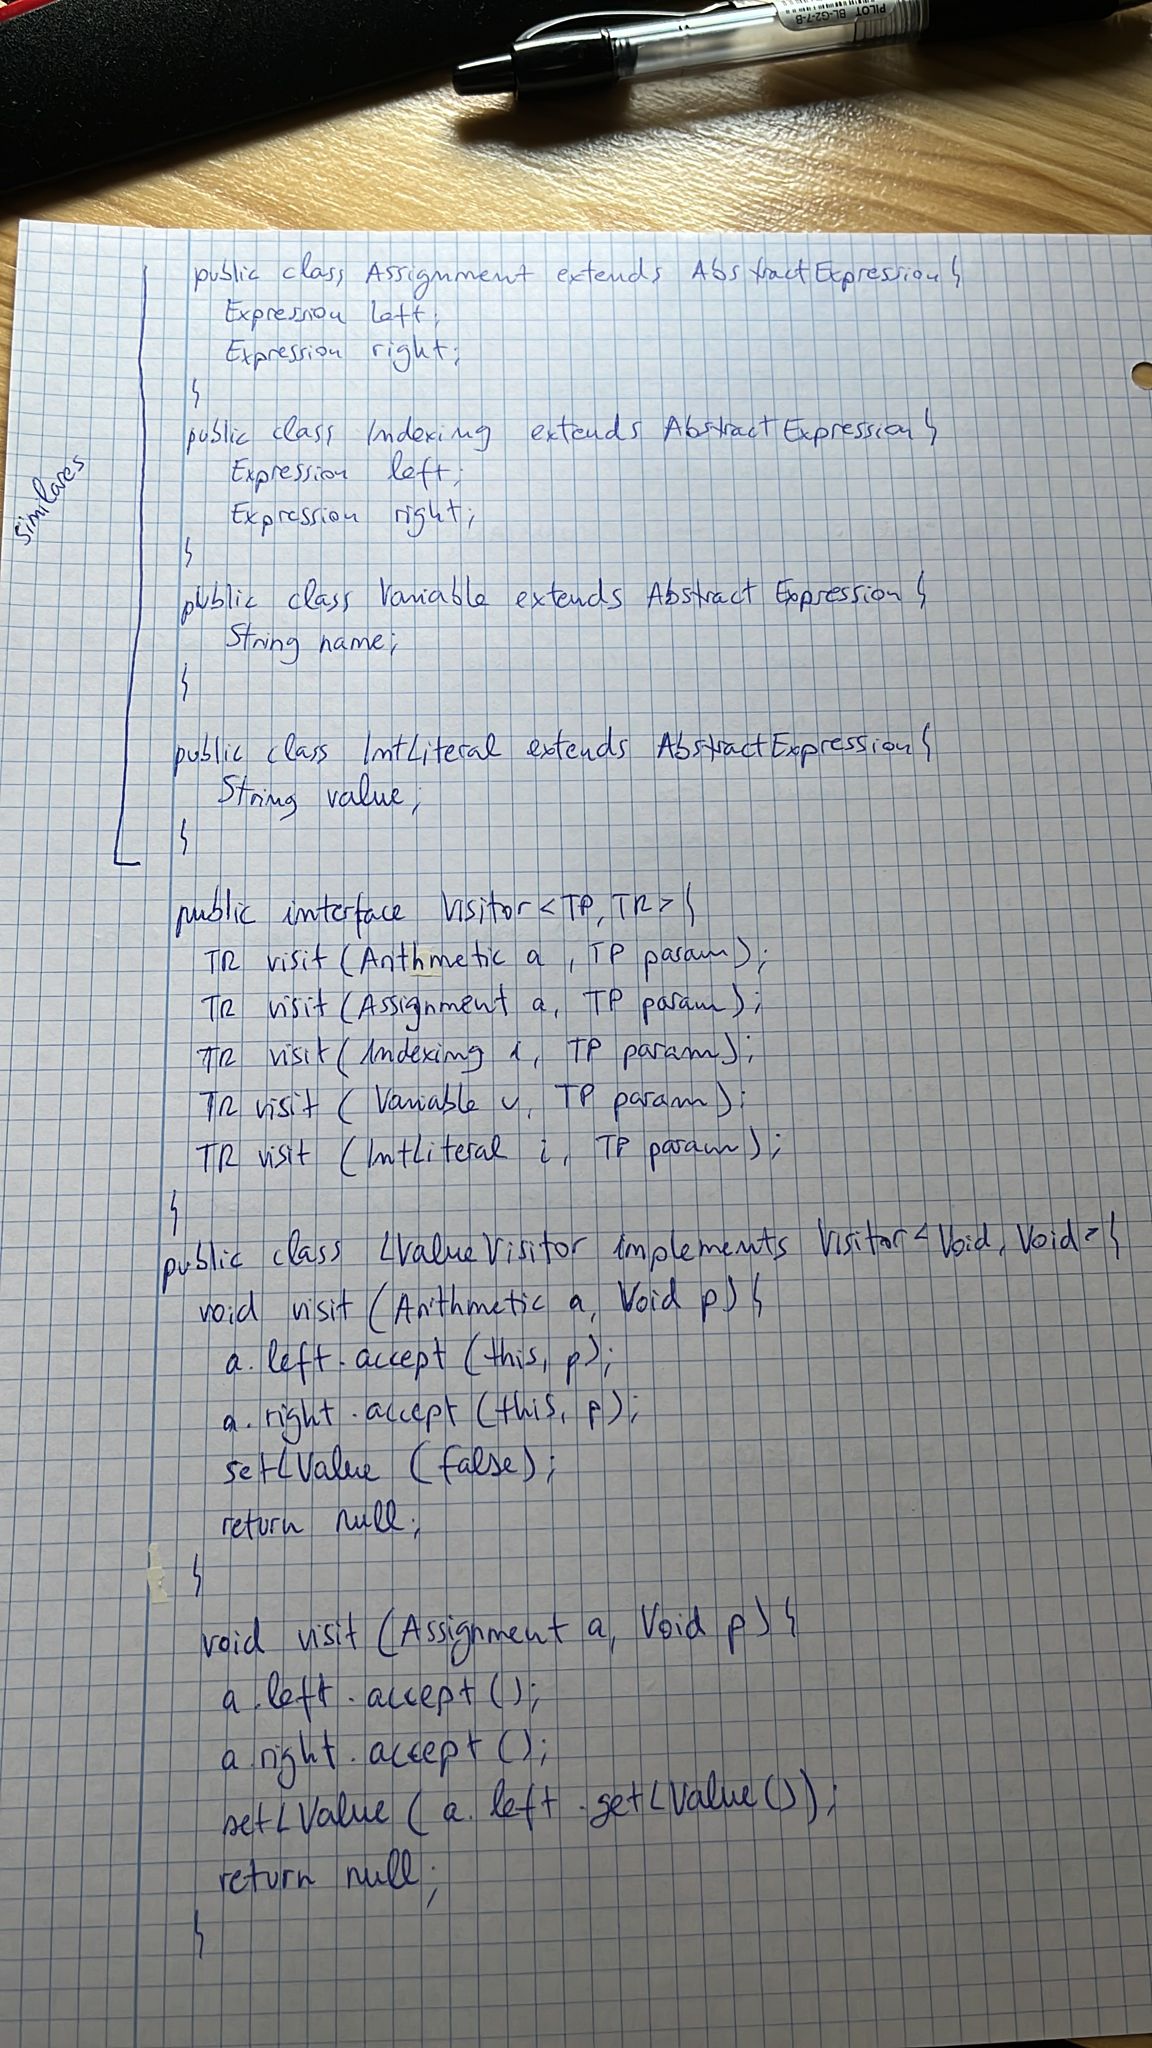 PILOT BL-G2-7-B
Similares
public class Assignment extends AbstractExpression{
Expression left;
Expression right;
}
public class Indexing extends AbstractExpression{
Expression left;
Expression right;
}
public class Variable extends AbstractExpression{
String name;
}
public class IntLiteral extends AbstractExpression{
String value;
}
public interface Visitor<TP, TR>{
TR visit (Arithmetic a, TP param);
TR visit (Assignment a, TP param);
TR visit (Indexing i, TP param);
TR visit (Variable v, TP param);
TR visit (IntLiteral i, TP param);
}
public class LValueVisitor implements Visitor<Void, Void>{
void visit (Arithmetic a, Void p) {
a.left.accept (this, p);
a.right.accept (this, p);
setLValue (false);
return null;
}
void visit (Assignment a, Void p) {
a.left.accept ();
a.right.accept ();
setLValue (a.left.getLValue());
return null;
}